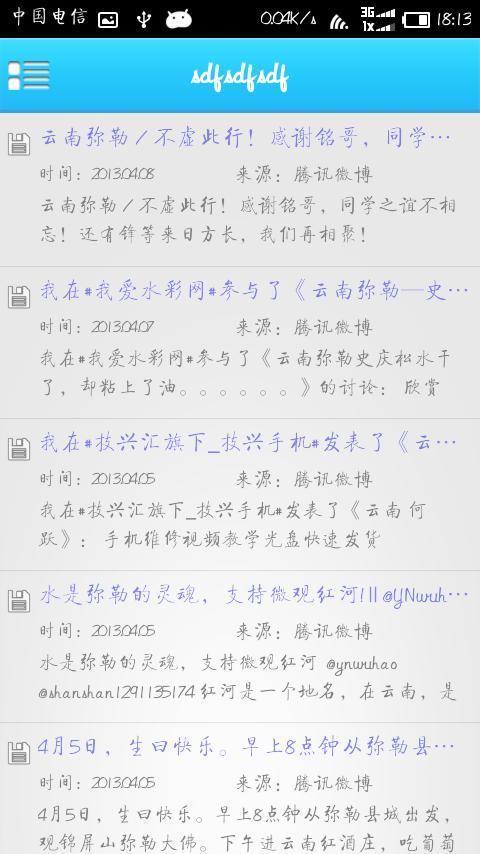 中国电信 0.04K/s 3G 1X 18:13
sdfsdfsdf
云南弥勒/不虚此行！感谢铭哥，同学…
时间：2013.04.08 来源：腾讯微博
云南弥勒/不虚此行！感谢铭哥，同学之谊不相
忘！还有锋等来日方长，我们再相聚！
我在#我爱水彩网#参与了《云南弥勒—史…
时间：2013.04.07 来源：腾讯微博
我在#我爱水彩网#参与了《云南弥勒史庆松水干
了，却粘上了油。。。。。。》的讨论： 欣赏
我在#技兴汇旗下_技兴手机#发表了《云…
时间：2013.04.05 来源：腾讯微博
我在#技兴汇旗下_技兴手机#发表了《云南 何
跃》： 手机维修视频教学光盘快速发货
水是弥勒的灵魂，支持微观红河!||@YNwuh…
时间：2013.04.05 来源：腾讯微博
水是弥勒的灵魂，支持微观红河 @ynwuhao
@shanshan1291135174 红河是一个地名，在云南，是
4月5日，生曰快乐。早上8点钟从弥勒县…
时间：2013.04.05 来源：腾讯微博
4月5日，生曰快乐。早上8点钟从弥勒县城出发，
观锦屏山弥勒大佛。下午进云南红酒庄，吃葡萄